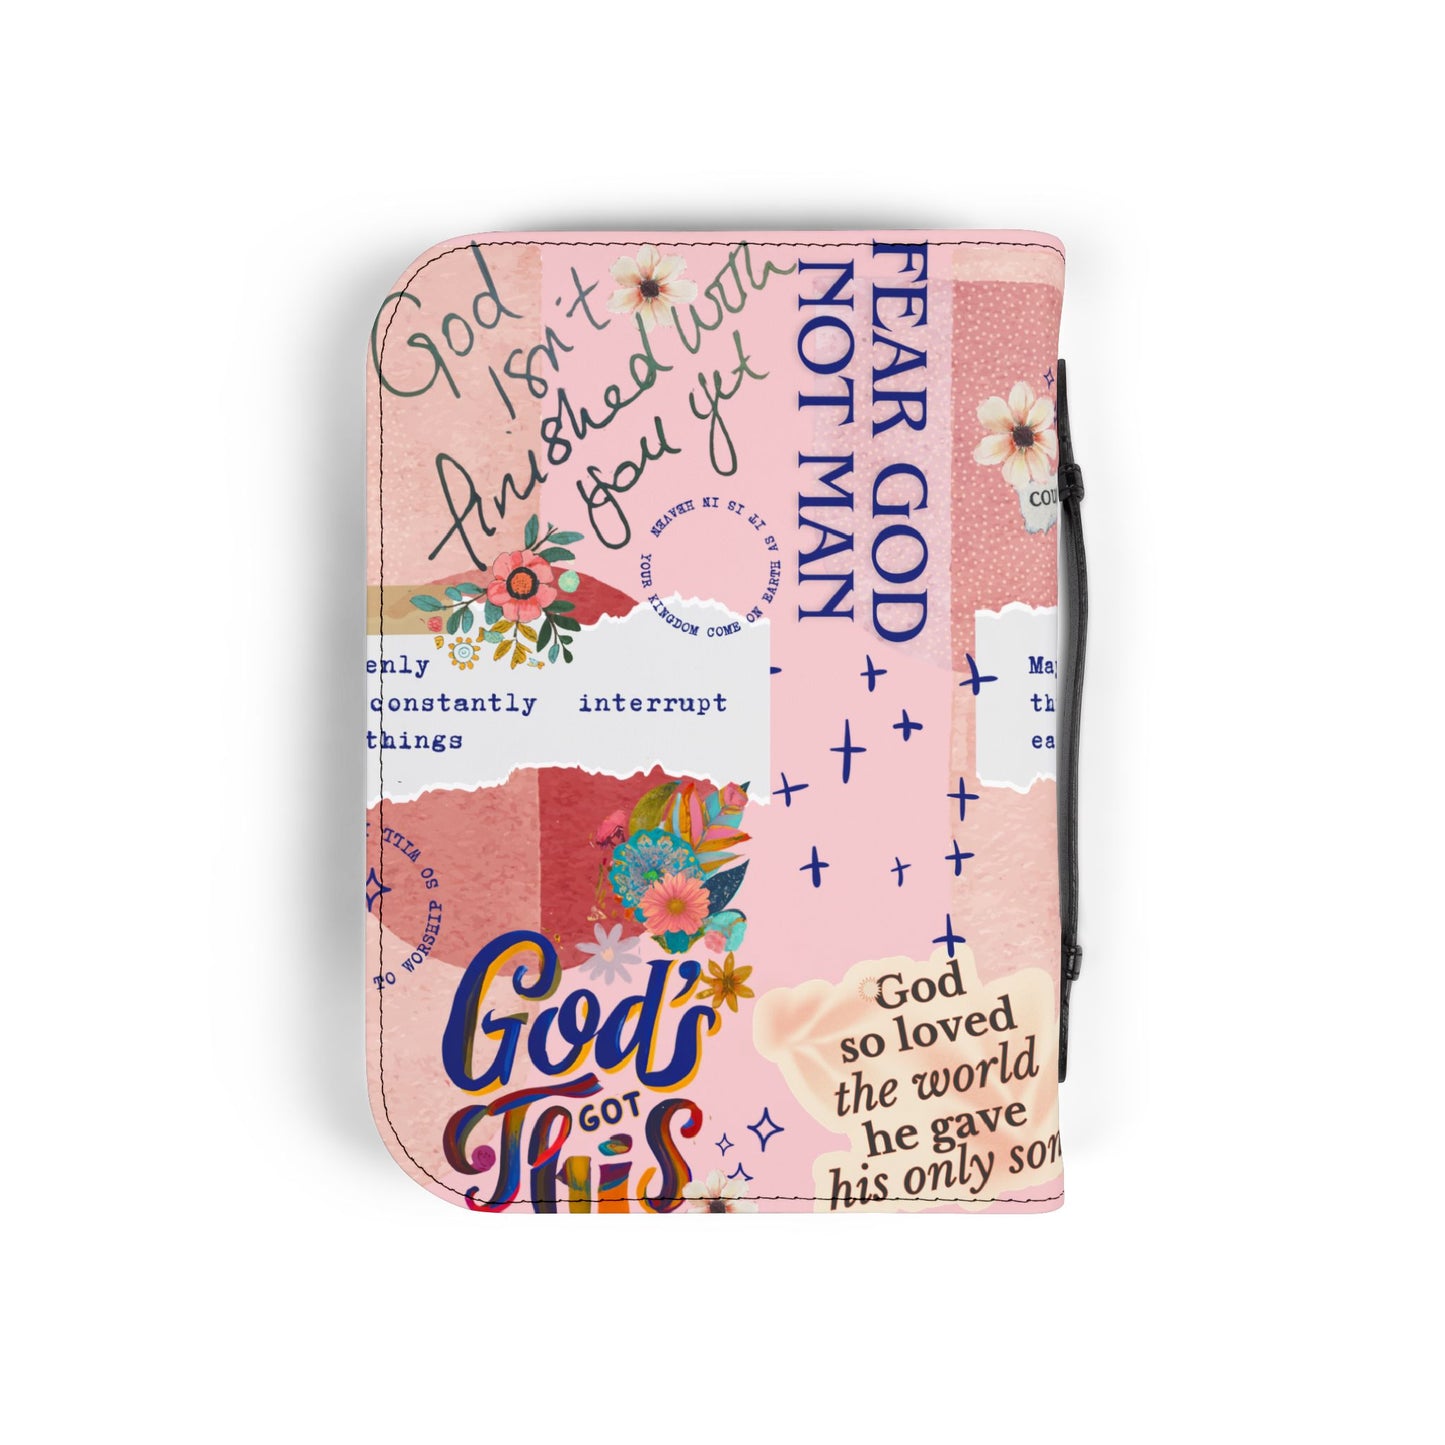 God
isn't
finished with
you yet
FEAR GOD
NOT MAN
YOUR KINGDOM COME ON EARTH AS IT IS IN HEAVEN
COU
enly
constantly interrupt
things
May
th
ea
TO WORSHIP SO WILL
God's
GOT
This
God
so loved
the world
he gave
his only son